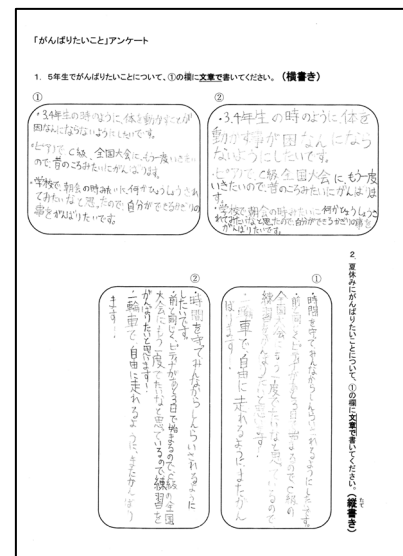 「がんばりたいこと」アンケート
1. 5年生でがんばりたいことについて、①の欄に文章で書いてください。(横書き)
①
・3,4年生の時のように、体を動かすことが
困なんにならないようにしたいです。
・ピアノで、C級、全国大会に、もう一度いきたい
ので、昔のころみたいにがんばります。
・学校で、朝会の時みたいに、何かひょうしょうされ
てみたいなと思ったので、自分ができるかぎりの
事をがんばりたいです。
②
・3,4年生の時のように体を
動かす事が困なんになら
ないようにしたいです。
・ピアノで、C級、全国大会に、もう一度
いきたいので、昔のころみたいにがんばりま
す。
・学校で、朝会の時みたいに何かひょうしょうさ
れてみたいなと思ったので、自分ができるかぎりの事を
がんばりたいです。
2. 夏休みにがんばりたいことについて、①の欄に文章で書いてください。(縦書き)
たて
①
・時間を守ってみんなからしんらいされるようにしたいです。
・前と同じく、ピティナが
全国大会にもう一度でたいなと思っているので
練習をがんばりたいと思います!
・一輪車で、自由に走れるように、またがん
ばります!
②
・時間を守ってみんなからしんらいされるように
したいです。
・前と同じく、ピティナがあと3日で始まるので、C級の全国
大会にもう一度でたいなと思っているので練習を
がんばりたいと思います!
・一輪車で、自由に走れるように、またがんばり
ます!